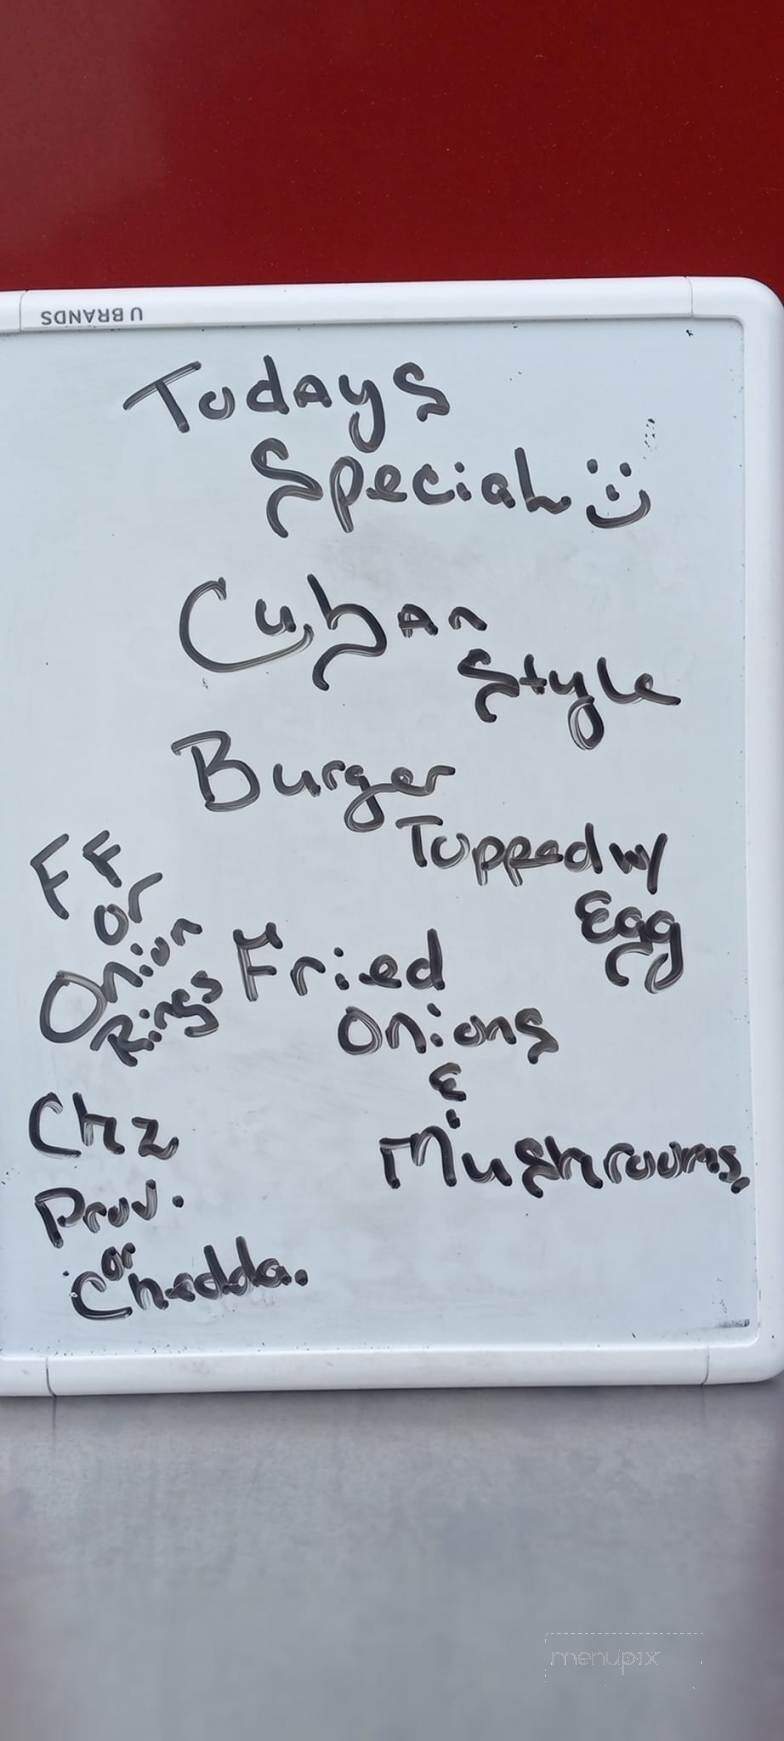 U BRANDS
Todays
Special
Cuban
Style
Burger
Topped w/
Egg
Fried
Onions
&
Mushrooms,
FF
or
Onion
Rings
Chz
Prov.
or
Chedda.
menupix